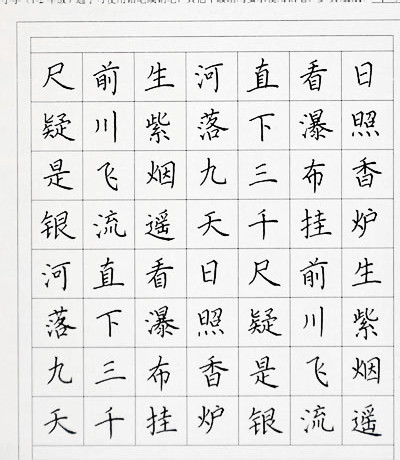 日照香炉生紫烟遥
看瀑布挂前川飞流
直下三千尺疑是银
河落九天日照香炉
生紫烟遥看瀑布挂
前川飞流直下三千
尺疑是银河落九天